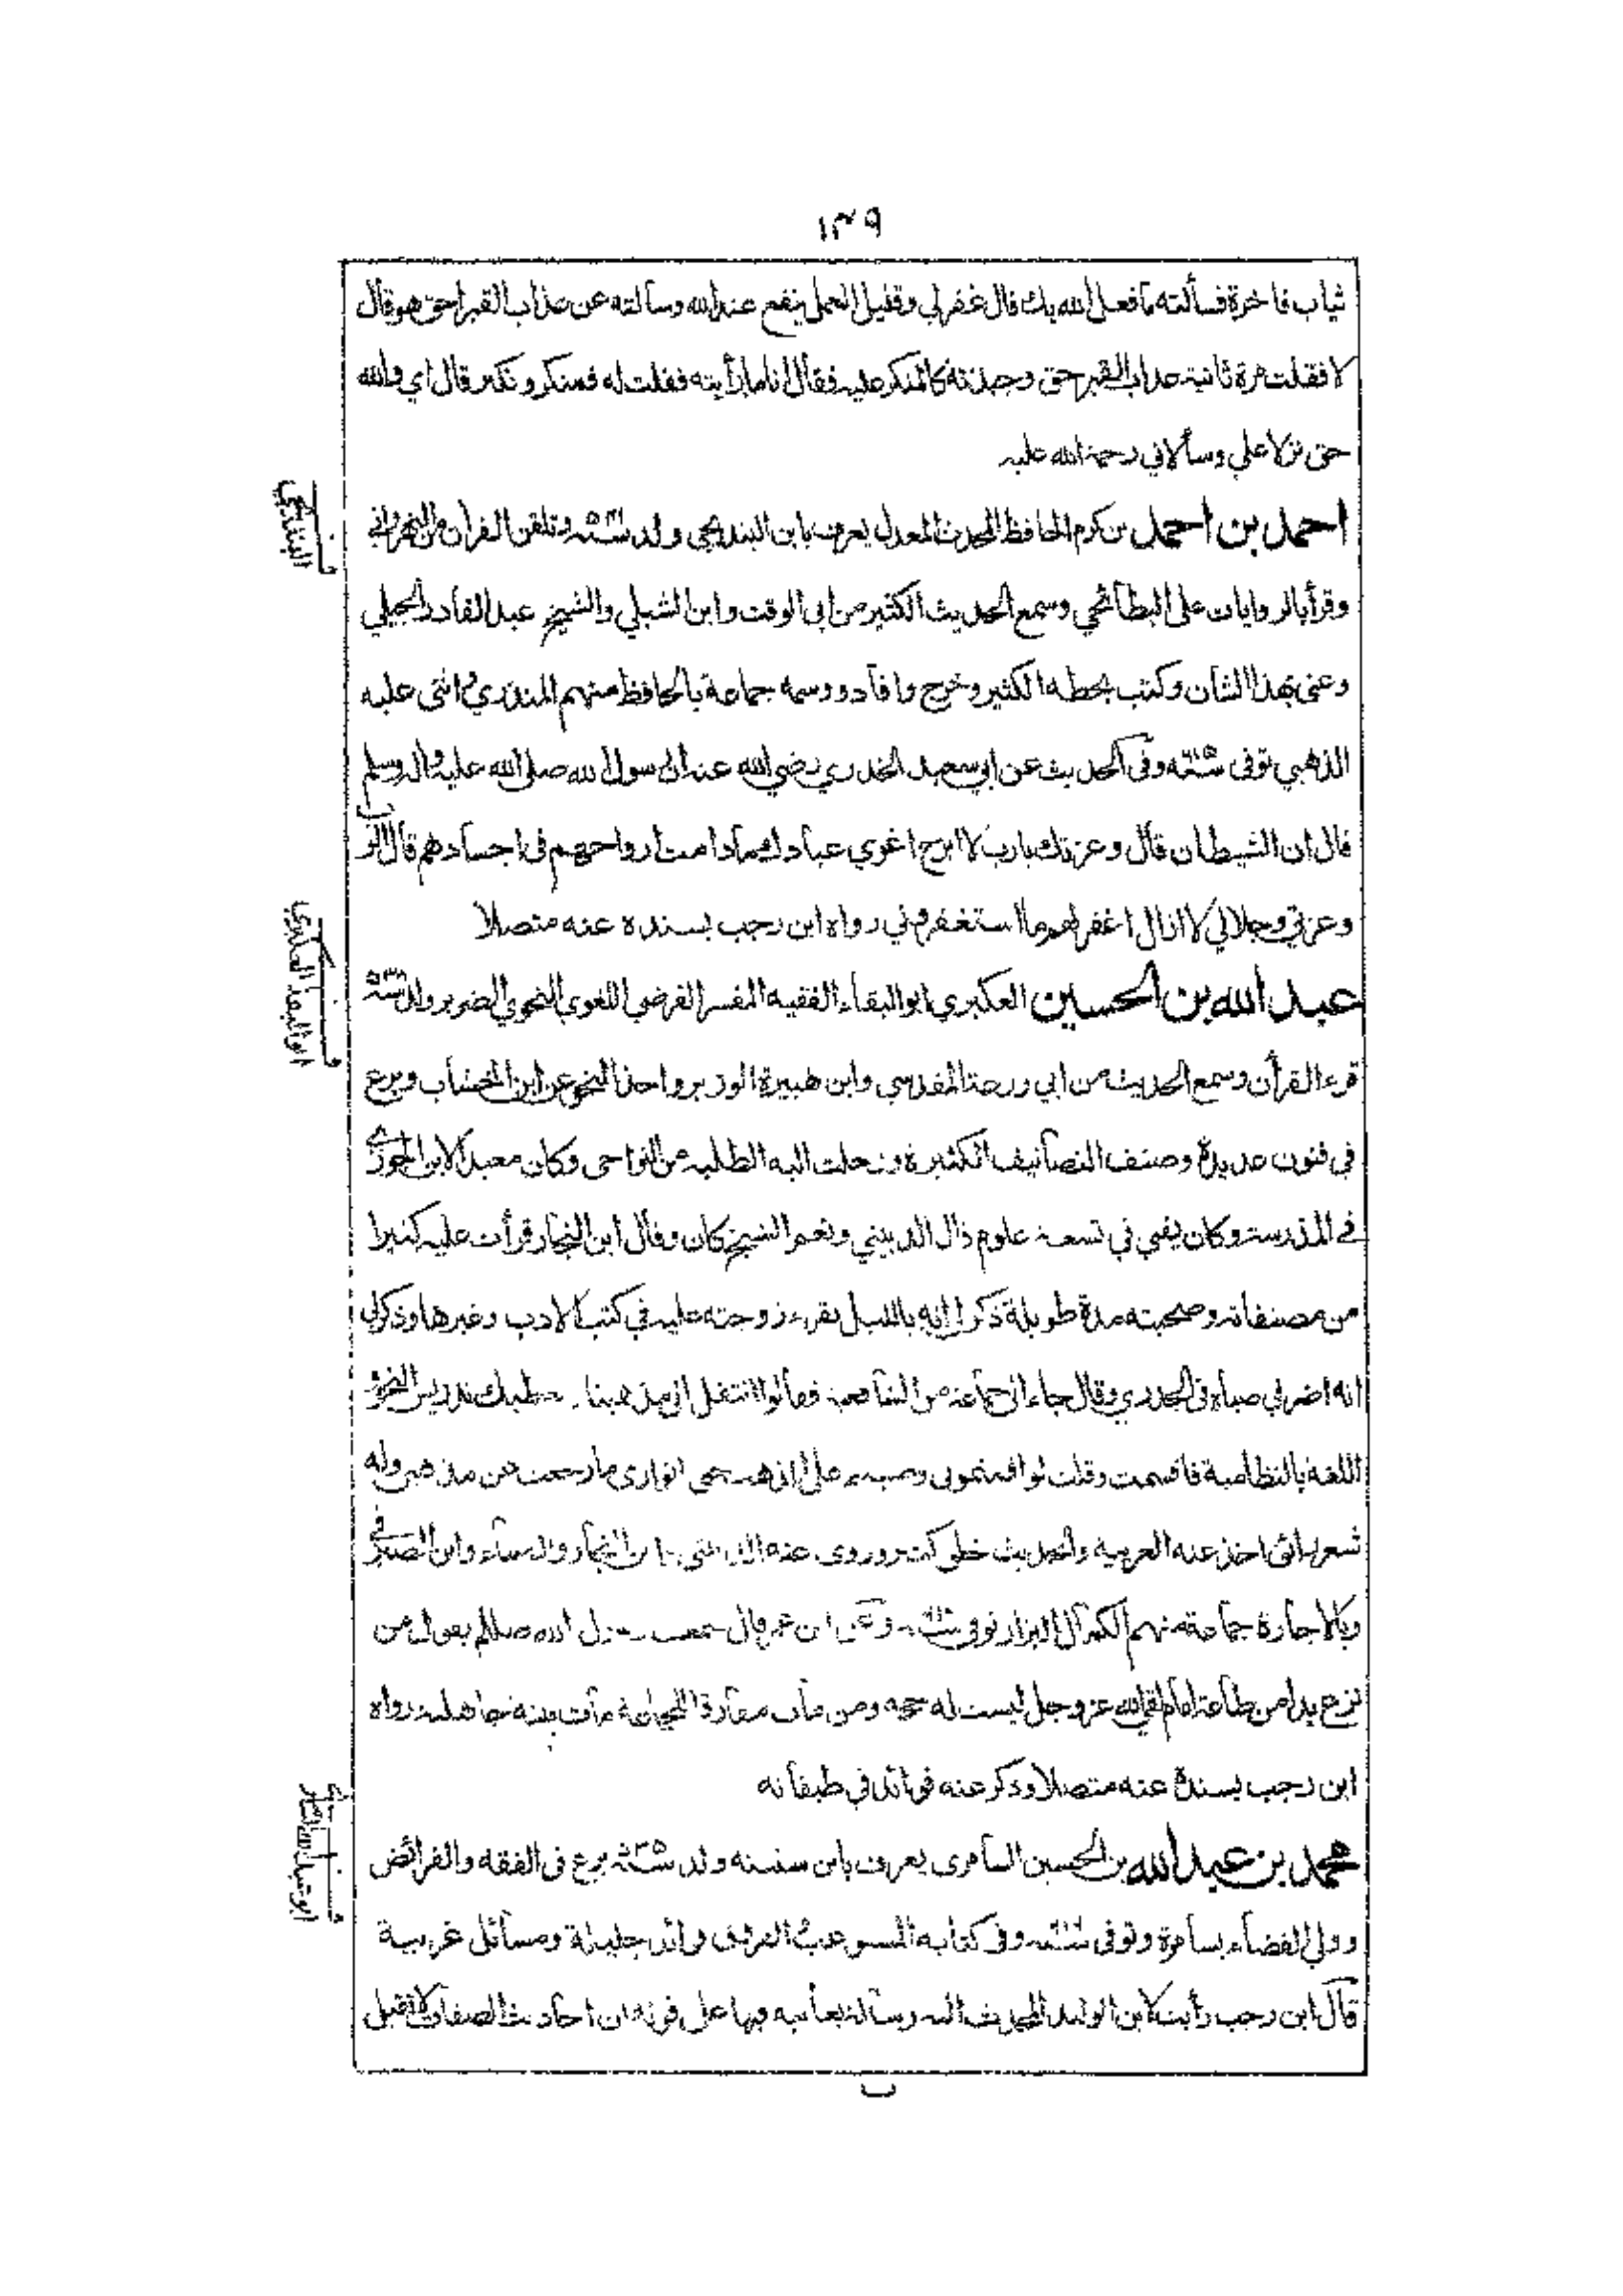 ١٣٩
ثياب فاخرة فسألته ما فعل الله بك قال غفرلي وقليل العمل ينفع عند الله وسألته عن عذاب القبر احق هو قال
لا فقلت مرة ثانية عذاب القبر حق وجبذته كالمنكر عليه فقال انا ما رأيته فقلت له فمنكر ونكير قال اي والله
حق نزلا علي وسألاني رحمة الله عليه
البندنيجي
احمد بن احمد بن كرم الحافظ المحدث المعدل يعرف بابن البندنيجي ولد وتلقن القران من
وقرأ بالروايات على البطائحي وسمع الحديث الكثير من ابي الوقت وابن الشبلي والشيخ عبد القادر الجيلي
وعني بهذا الشأن وكتب بخطه الكثير وخرج وافاد ووسمه جماعة بالحافظ منهم المنذري اثنى عليه
الذهبي توفى وفى الحديث عن ابي سعيد الخدري رضي الله عنه ان رسول الله صلى الله عليه واله وسلم
قال ان الشيطان قال وعزتك يا رب لا ابرح اغوي عبادك مادامت ارواحهم فى اجسادهم قال الرب
وعزتي وجلالي لا ازال اغفر لهم ما استغفروني رواه ابن رجب بسنده عنه متصلا
ابو البقاء العكبري
عبد الله بن الحسين العكبري ابو البقاء الفقيه المفسر الفرضي اللغوي النحوي الضرير ولد
قرء القرأن وسمع الحديث من ابي زرعة المقدسي وابن هبيرة الوزير واخذ النحو عن ابن الخشاب وبرع
في فنون عديدة وصنف التصانيف الكثيرة ورحلت اليه الطلبة من النواحى وكان معيدا لابن الجوزي
في المدرسة وكان يفتي في تسعة علوم قال الدبيثي ونعم الشيخ كان وقال ابن النجار قرأت عليه كثيرا
من مصنفاته وصحبته مدة طويلة ذكر لي انه بالليل تقرء زوجته عليه في كتب الادب وغيرها وذكر لي
انه اضر في صباه فى الجدري وقال جاء الى جماعة من الشافعية فقالوا انتقل الى مذهبنا نعطيك تدريس النحو و
اللغة بالنظامية فاقسمت وقلت لو اقمتموني وصببتم علي الذهب حتى اتوارى ما رجعت عن مذهبي وله
شعر رائق اخذ عنه العربية والحديث خلق كثير وروى عنه الدبيثي وابن النجار والضياء وابن الصيرفي
وبالاجازة جماعة منهم الكمال البزار توفى وعن ابن عمر قال سمعت رسول الله صللم يقول من
نزع يدا من طاعة امام لقي الله عز وجل ليست له حجة ومن مات مفارقا للجماعة مات ميتة جاهلية رواه
ابن رجب بسنده عنه متصلا وذكر عنه فوائد في طبقاته
ابو عبد الله السامري
محمد بن عبد الله بن الحسين السامرى يعرف بابن سنينه ولد برع فى الفقه والفرائض
وولي القضاء بسامرة وتوفى وفى كتابه المستوعب الفروق فوائد جليلة ومسائل غريبة
قال ابن رجب رأيت لابن الوليد المحدث اليه رسالة يعاتبه فيها على قوله ان احاديث الصفات لا تقبل
ب